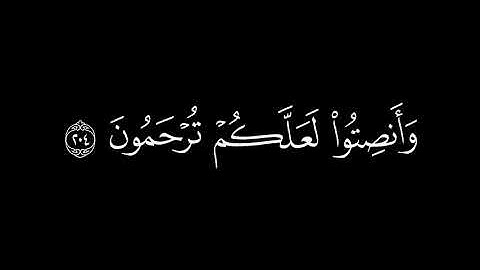 وَأَنصِتُوا۟ لَعَلَّكُمْ تُرْحَمُونَ ٢٠٤